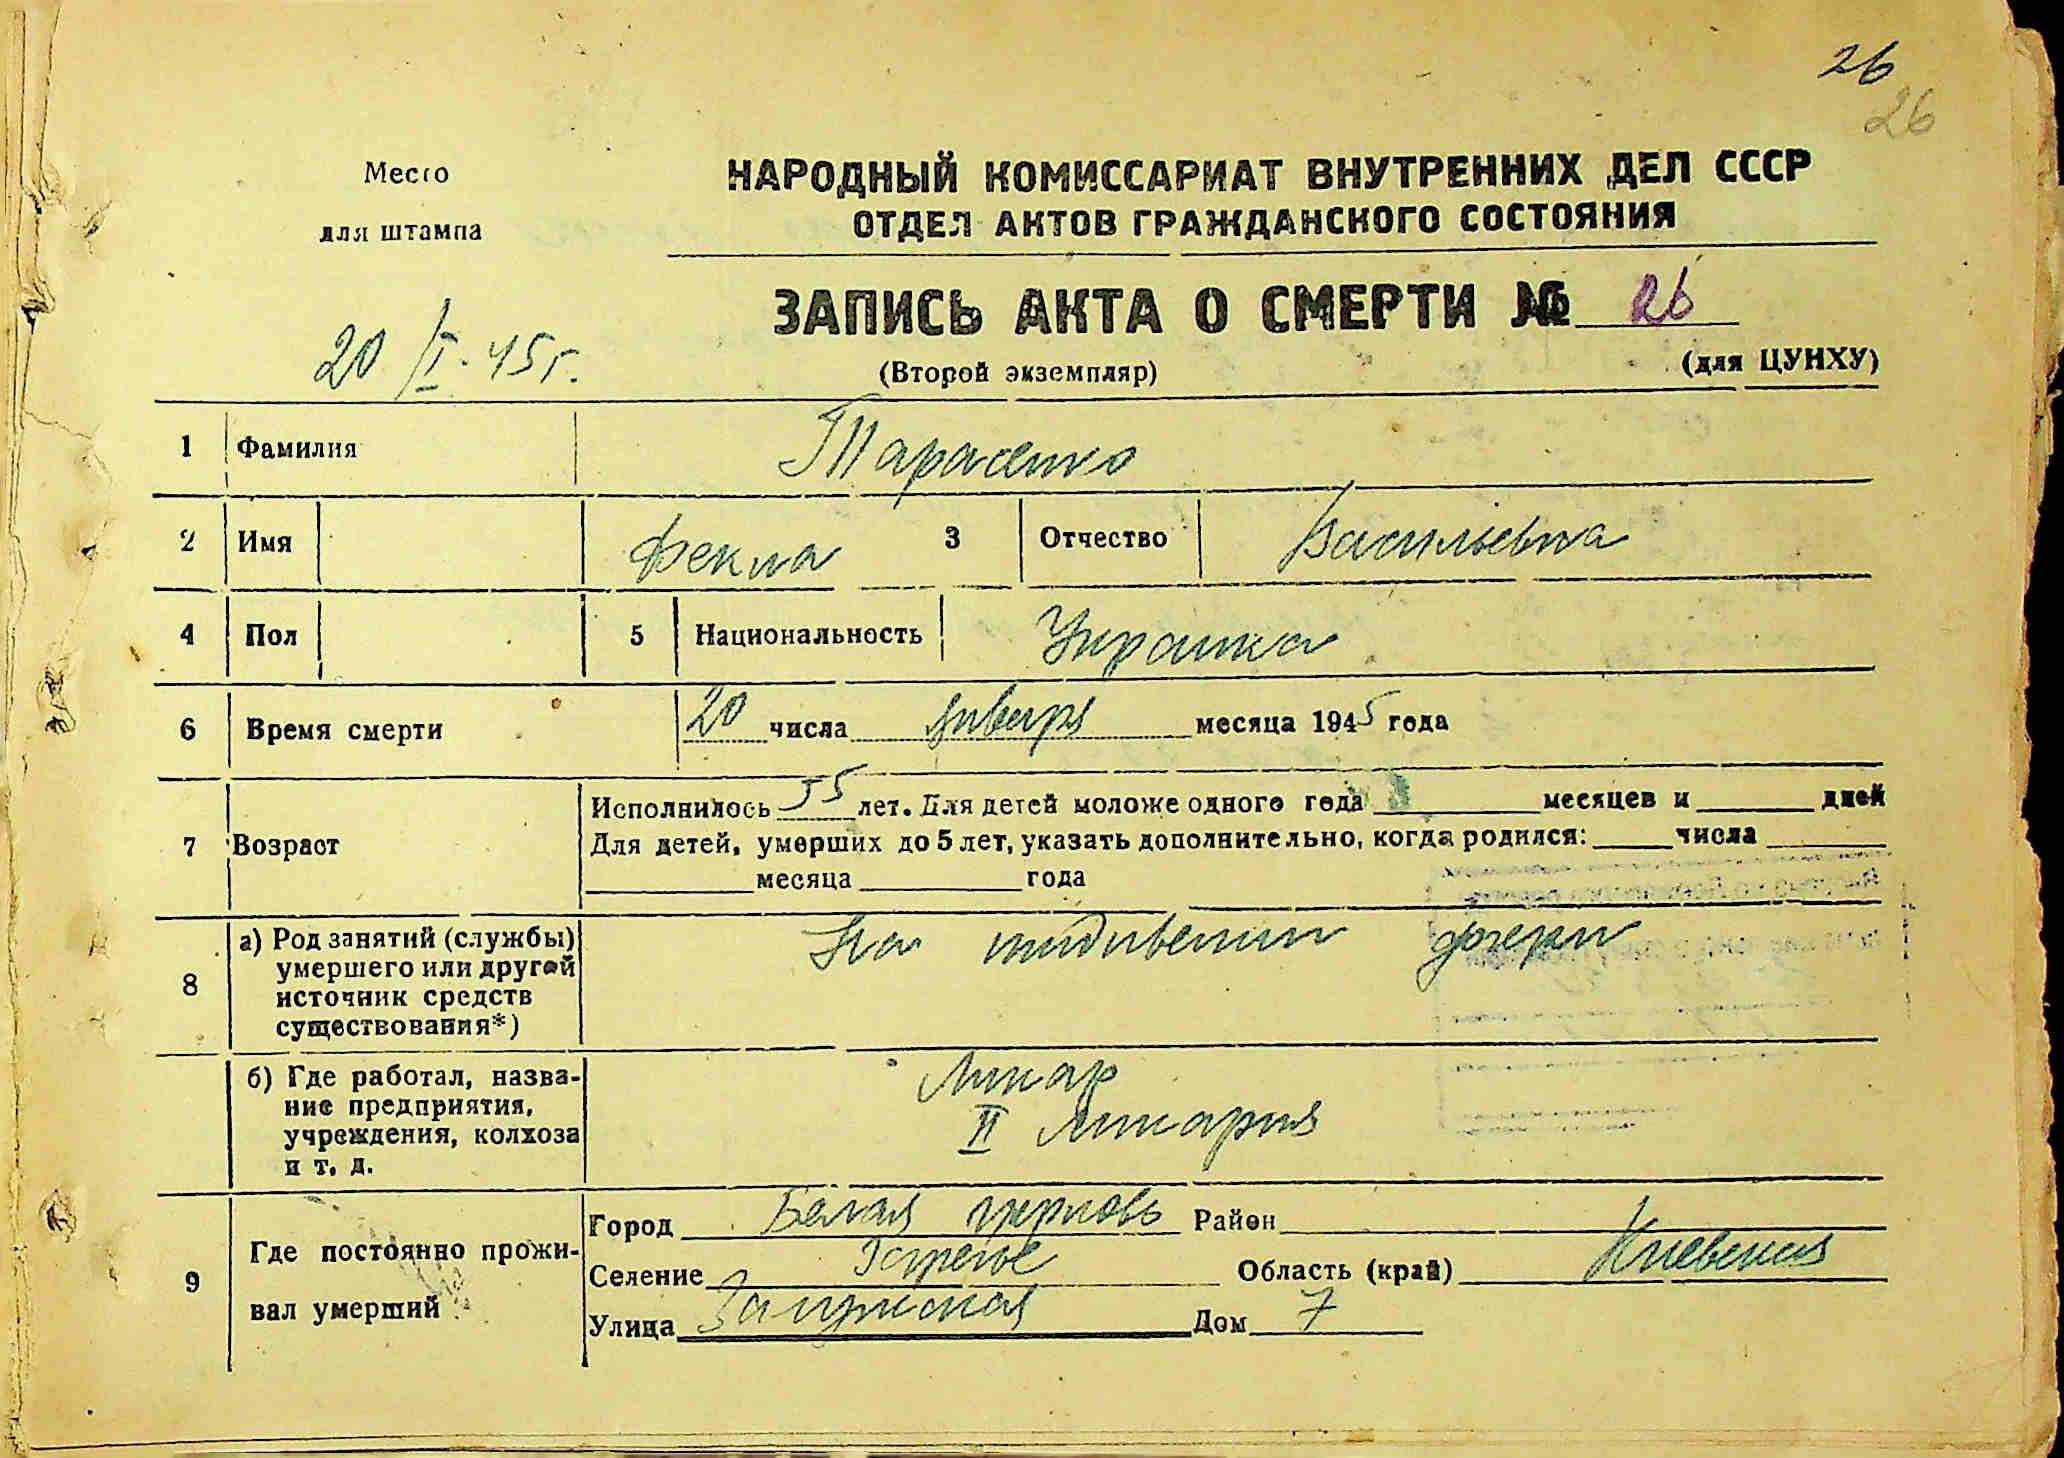 26
26
Место
для штампа
НАРОДНЫЙ КОМИССАРИАТ ВНУТРЕННИХ ДЕЛ СССР
ОТДЕЛ АКТОВ ГРАЖДАНСКОГО СОСТОЯНИЯ
ЗАПИСЬ АКТА О СМЕРТИ № 26
20/I-45г.
(Второй экземпляр)
(для ЦУНХУ)
1 Фамилия Тарасенко
2 Имя Фекла 3 Отчество Васильевна
4 Пол 5 Национальность Украинка
6 Время смерти 20 числа января месяца 1945 года
7 Возраст
Исполнилось 55 лет. Для детей моложе одного года месяцев и дней
Для детей, умерших до 5 лет, указать дополнительно, когда родился: числа
месяца года
8
а) Род занятий (службы)
умершего или другой
источник средств
существования*)
На иждивении дочери
б) Где работал, назва-
ние предприятия,
учреждения, колхоза
и т. д.
II
9
Где постоянно прожи-
вал умерший
Город Белая церковь Район
Селение Область (край) Киевская
Улица Дом 7